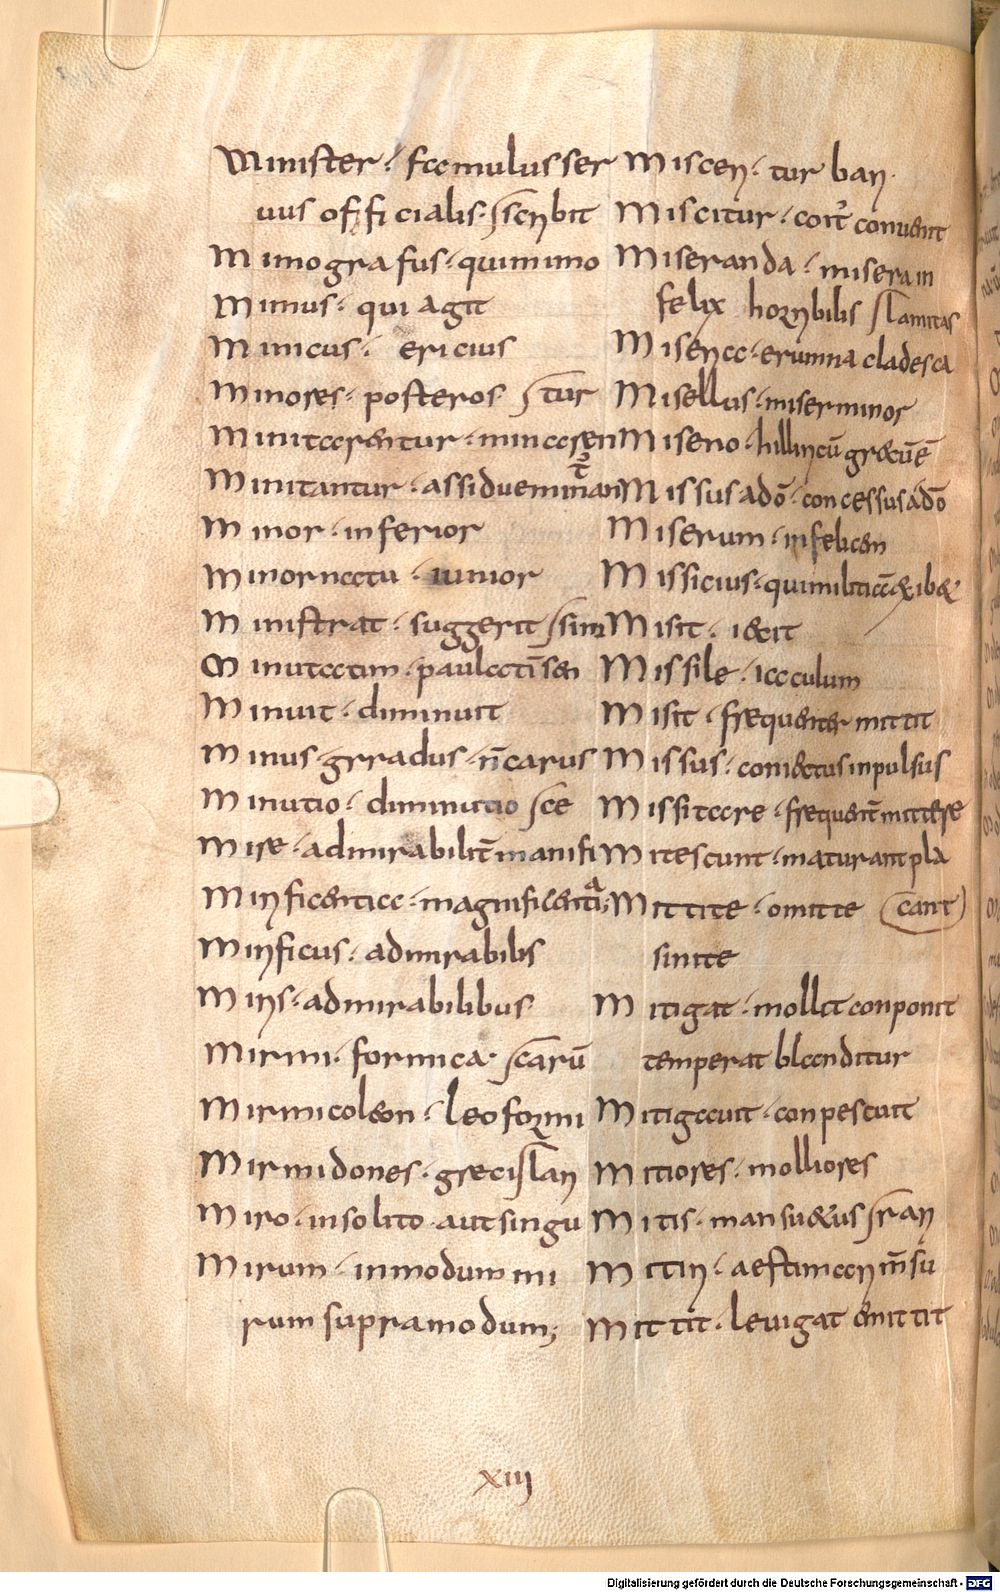 Minister · famulus ser
uus officialis · scribit
Mimografus · quimimo
Mimus · qui agit
Miricus · ericius
Minores · posteros tur
Minitarentur · minaren
Minitantur · assidueminan
Minor · inferior
Minornatu · iunior
Ministrat · suggerit sim
Minutatim · paulatī sen
Minuit · diminuit
Minus grradus · n̄ carus
Minutio · diminutio ce
Mire · admirabilit̄ manifi
Mirificentia · magnificentia
Mirificus · admirabilis
Miris · admirabilibus
Mirmi · formica carū
Mirmicoleon · leo formi
Mirmidones · greci lari
Miro · insolito aut singu
Mirum · inmodum mi
rum supramodum;
Miscen · tur bari
Miscitur · coit convenit
Miseranda · misera in
felix horribilis lamitas
Misericc · erumna clades ca
Misellus · miser minor
Miseno ·
Missus adō · concessus adō
Miserum · infelicem
Missicius · quimiliticē
Misit · iecit
Missile · iaculum
Misit · frequenter mittit
Missus · coniectus inpulsus
Missitare · frequent̄ mittere
Mitescunt · maturant pla
Mittite · omitte cant
sinite
Mitigat · mollit conponit
temperat blanditur
Mitigauit · conpescuit
Mitiores · molliores
Mitis · mansuetus rari
Mitiri · aestimari m̄su
Mittit · leuigat emittit
xiij
Digitalisierung gefördert durch die Deutsche Forschungsgemeinschaft - DFG